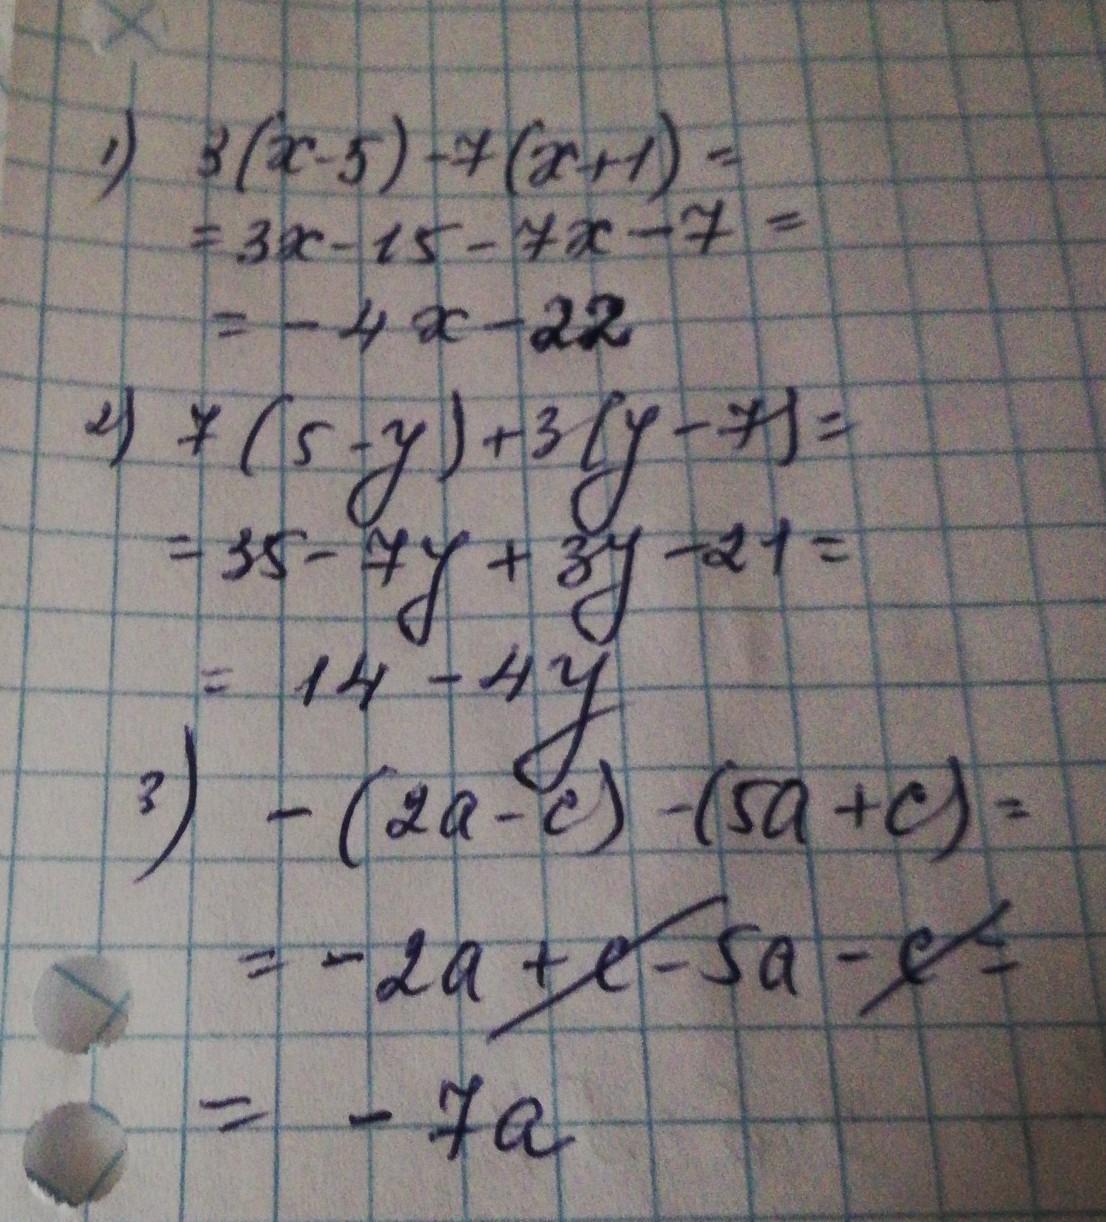 1) 3(x-5)-7(x+1)=
=3x-15-7x-7=
=-4x-22
2) 7(5-y)+3(y-7)=
=35-7y+3y-21=
=14-4y
3) -(2a-c)-(5a+c)=
=-2a+c-5a-c=
=-7a